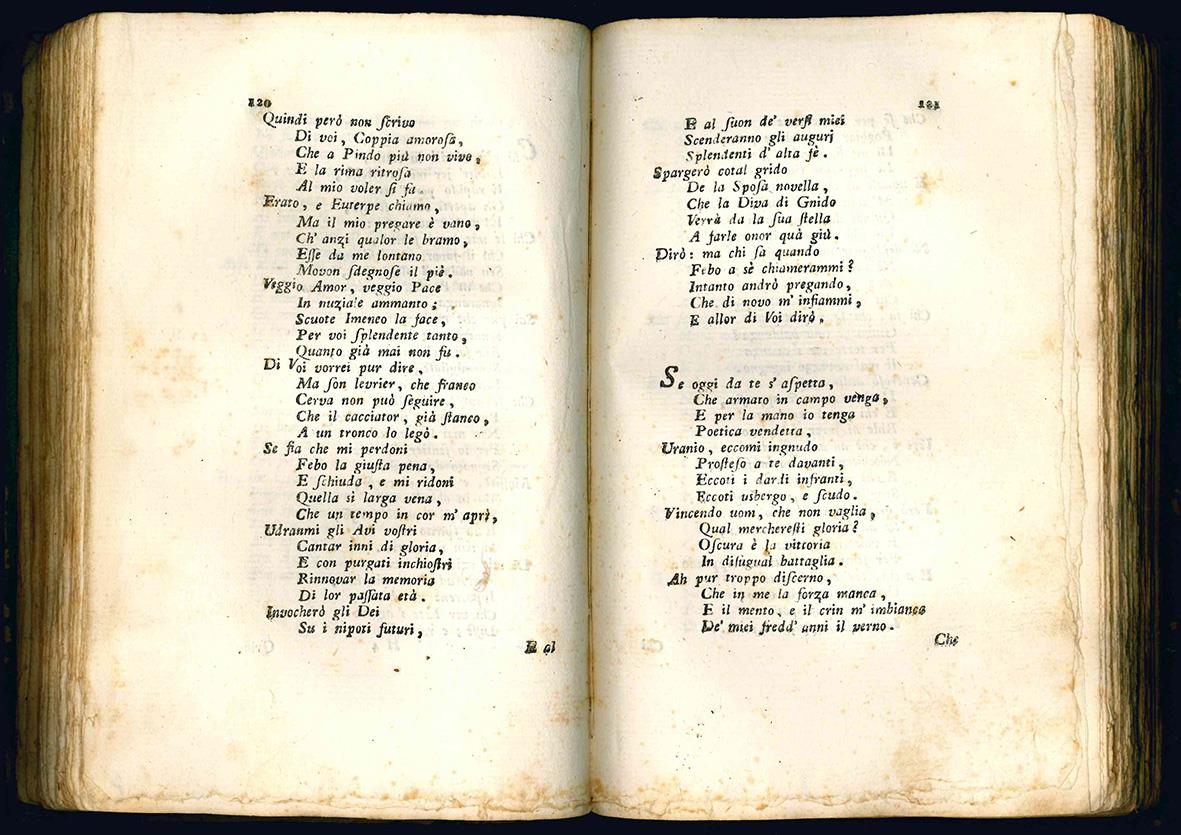 120
Quindi però non ſcrivo
Di voi, Coppia amoroſa,
Che a Pindo più non vivo,
E la rima ritroſa
Al mio voler ſi fa.
Erato, e Euterpe chiamo,
Ma il mio pregare è vano,
Ch' anzi qualor le bramo,
Eſſe da me lontano
Movon ſdegnoſe il piè.
Veggio Amor, veggio Pace
In nuziale ammanto;
Scuote Imeneo la face,
Per voi ſplendente tanto,
Quanto già mai non fu.
Di Voi vorrei pur dire,
Ma ſon levrier, che franco
Cerva non può ſeguire,
Che il cacciator, già ſtanco,
A un tronco lo legò.
Se fia che mi perdoni
Febo la giuſta pena,
E ſchiuda, e mi ridoni
Quella sì larga vena,
Che un tempo in cor m' aprì,
Udranmi gli Avi voſtri
Cantar inni di gloria,
E con purgati inchioſtri
Rinnovar la memoria
Di lor paſſata età.
Invocherò gli Dei
Su i nipoti futuri,
E al
121
E al ſuon de' verſi miei
Scenderanno gli augurj
Splendenti d' alta fè.
Spargerò cotal grido
De la Spoſa novella,
Che la Diva di Gnido
Verrà da la ſua ſtella
A farle onor quà giù.
Dirò: ma chi ſa quando
Febo a sè chiamerammi?
Intanto andrò pregando,
Che di novo m' infiammi,
E allor di Voi dirò.
Se oggi da te s' aſpetta,
Che armato in campo venga,
E per la mano io tenga
Poetica vendetta,
Uranio, eccomi ingnudo
Proſteſo a te davanti,
Eccoti i dardi infranti,
Eccoti usbergo, e ſcudo.
Vincendo uom, che non vaglia,
Qual mercbereſti gloria?
Oſcura è la vittoria
In diſugual battaglia.
Ah pur troppo diſcerno,
Che in me la forza manca,
E il mento, e il crin m' imbianca
De' miei fredd' anni il verno.
Che